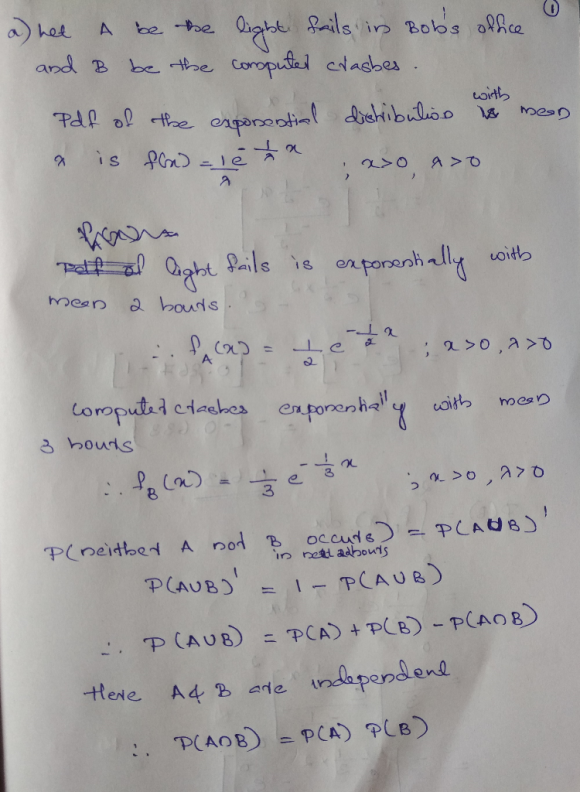 ①
a) Let A be the light fails in Bob's office
and B be the computer crashes.
Pdf of the exponential distribution with mean
λ is f(x) = 1/λ e^{-1/λ x} ; x>0, λ>0
light fails is exponentially with
mean 2 hours.
∴ f_A(x) = 1/2 e^{-1/2 x} ; x>0, λ>0
Computer crashes exponentially with mean
3 hours
∴ f_B(x) = 1/3 e^{-1/3 x} ; x>0, λ>0
P(neither A nor B occurs in next 2 hours) = P(A∪B)'
P(A∪B)' = 1 - P(A∪B)
∴ P(A∪B) = P(A) + P(B) - P(A∩B)
Here A & B are independent
∴ P(A∩B) = P(A) P(B)